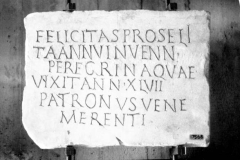 FELICITAS PROSEII
TA ANNV INVENN
PEREGRINA QVAE
VIXIT ANN XLVII
PATRONVS VENE
MERENTI